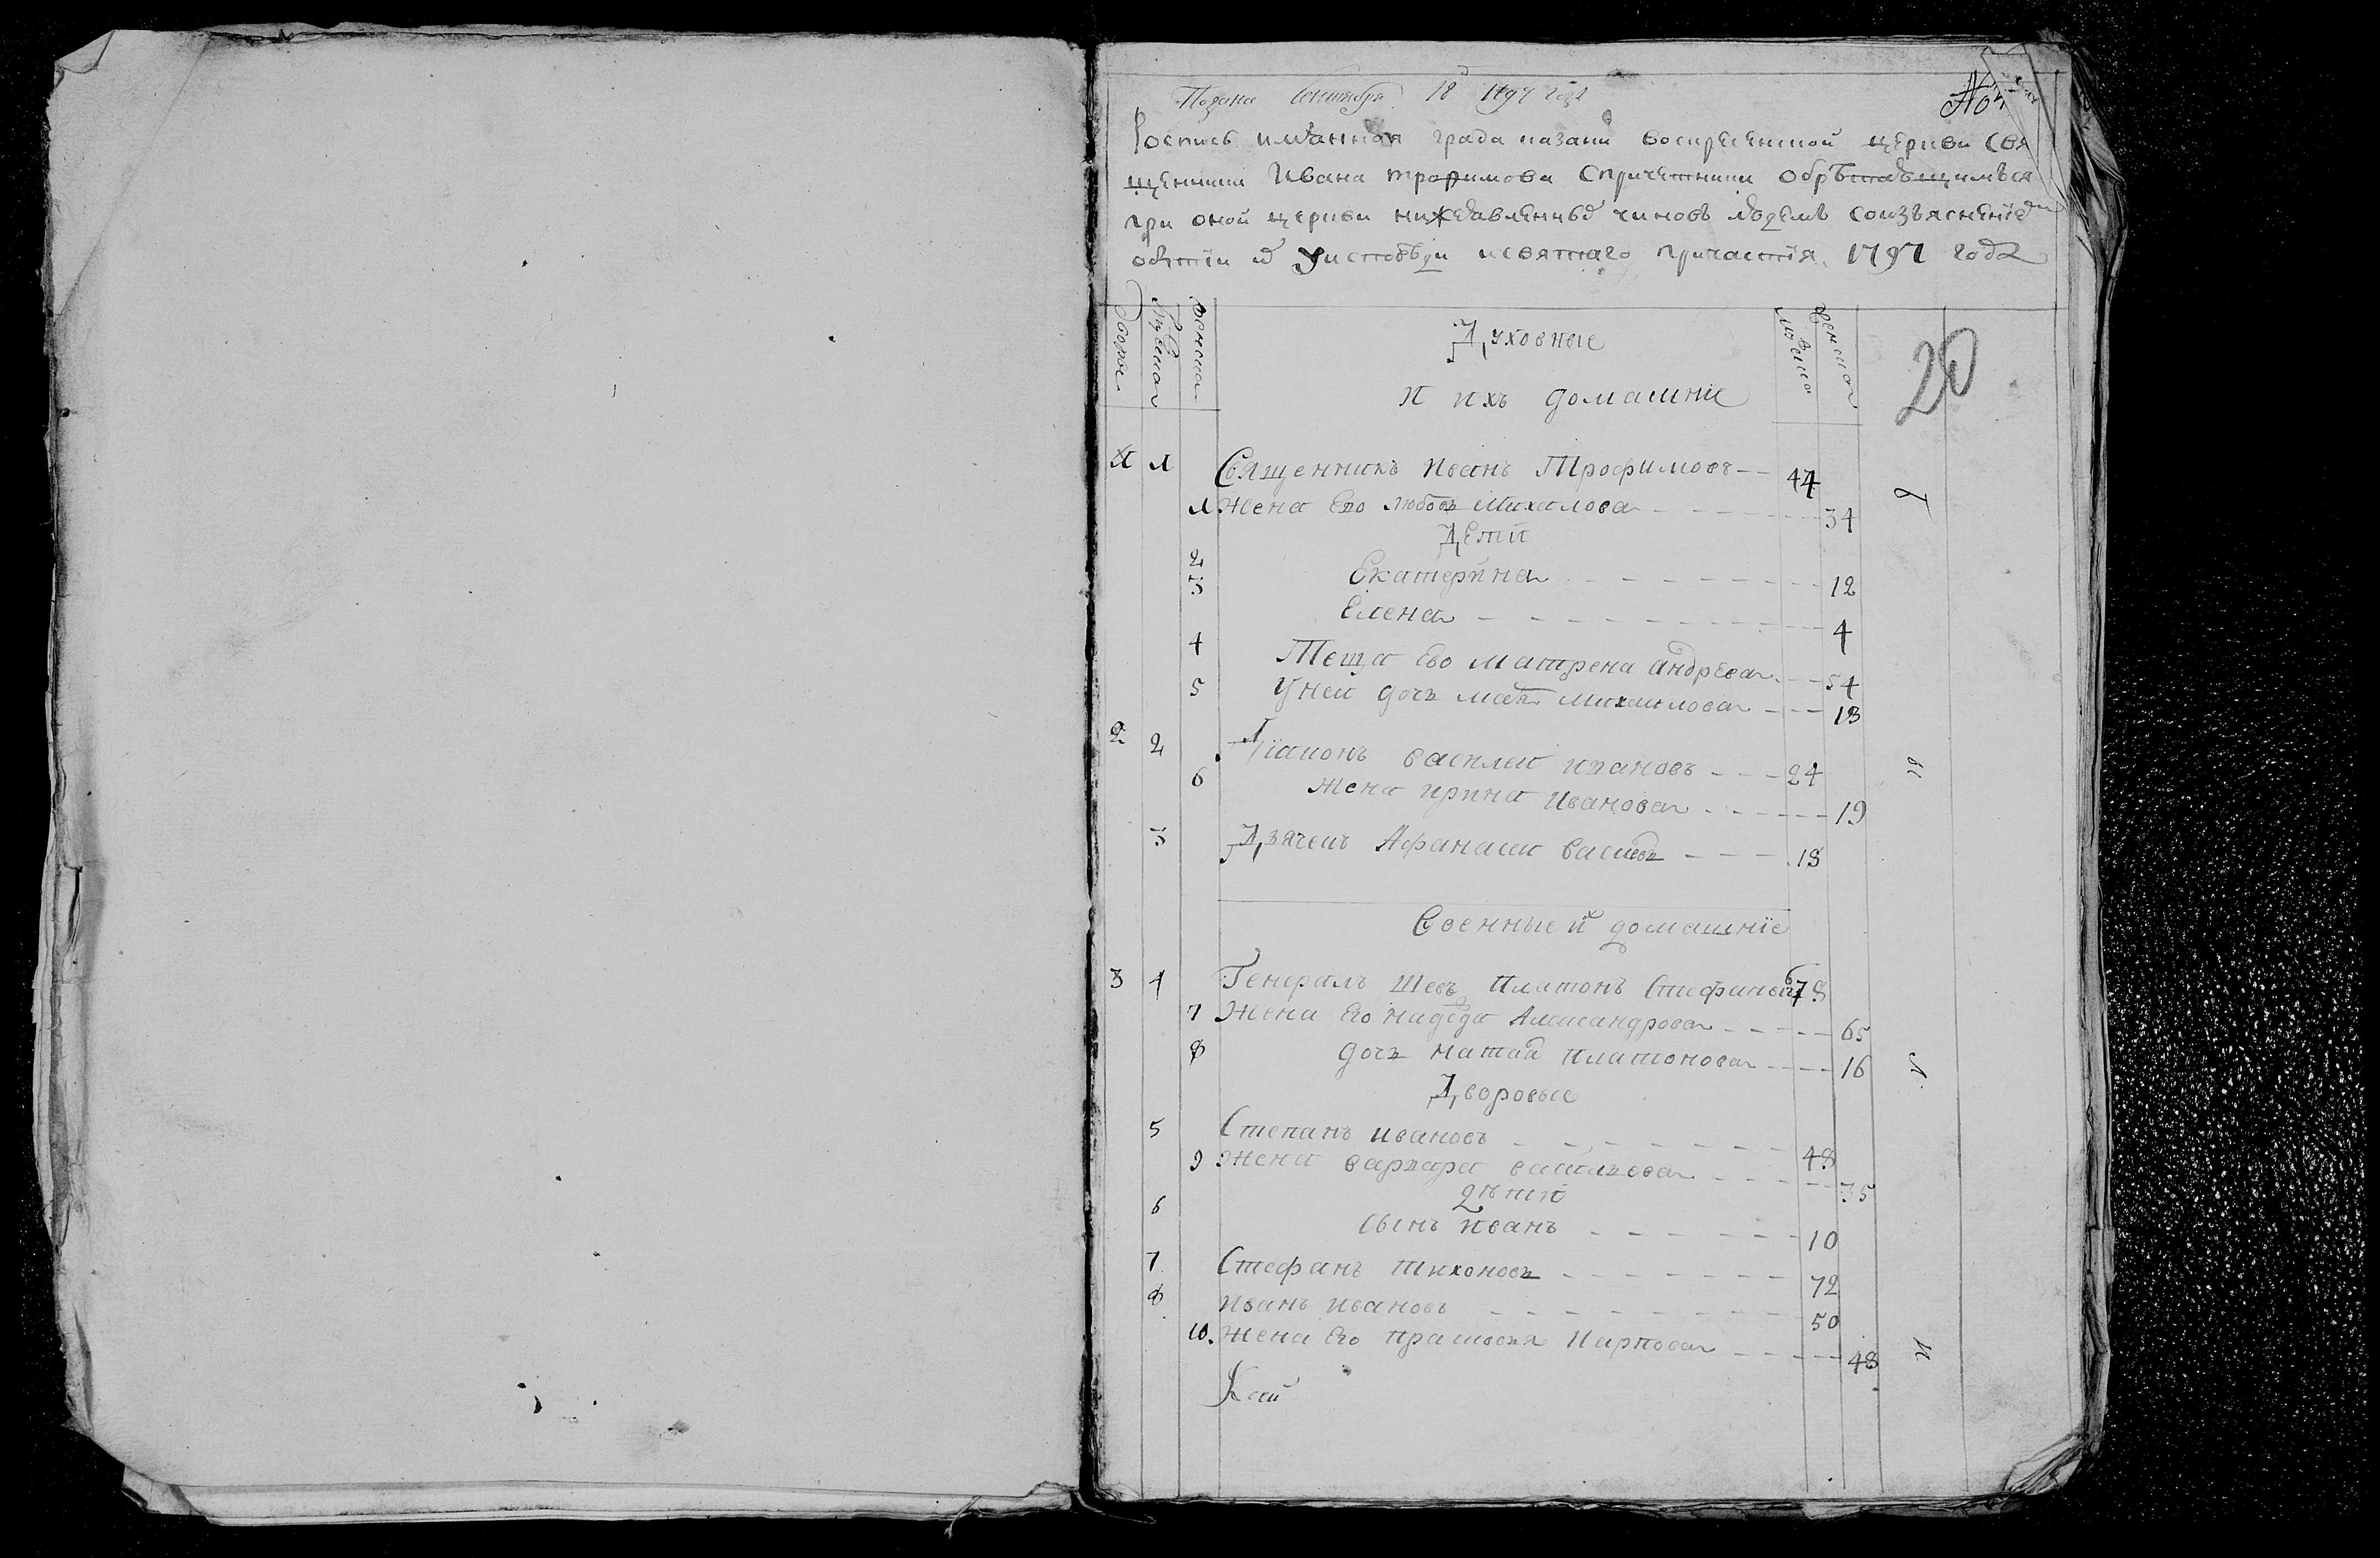 Подана Сентября 18 1797 года
№
Роспись имянная града казани воскресенской церкви Свя
щенника Ивана трофимова Спричетники обрѣтающимъся
при оной церкви нижеявленныхъ чиновъ людемъ соизъясненіемъ
о бытіи ихъ у исповѣди исвятаго причастія. 1797 года
дворы
мужеска
женска
Духовные
мужеска
женска
20
и ихъ домашние
1 1 Священникъ Иванъ Трофимовъ 44
1 Жена Его любовь Михаилова 34
Дети
2 Екатерина 12
3 Елена 4
4 Теща Ево матрена андреева 54
5 У ней дочь Михаилова 13
2 2 Дiаконъ василеи ивановъ 24
6 жена ирина Иванова 19
3 Дьячекъ Афанасеи васильевъ 18
Военные их домашнiе
3 4 Генералъ Платонъ Стефановъ
7 Жена Его надежда Александрова 65
8 дочь наталья платонова 16
Дворовые
5 Степанъ ивановъ 48
9 жена варвара васильева 35
дѣти
6 сынъ иванъ 10
7 Стефанъ тихоновъ 72
8 иванъ ивановъ 50
10. жена Его прасковья Карпова 48